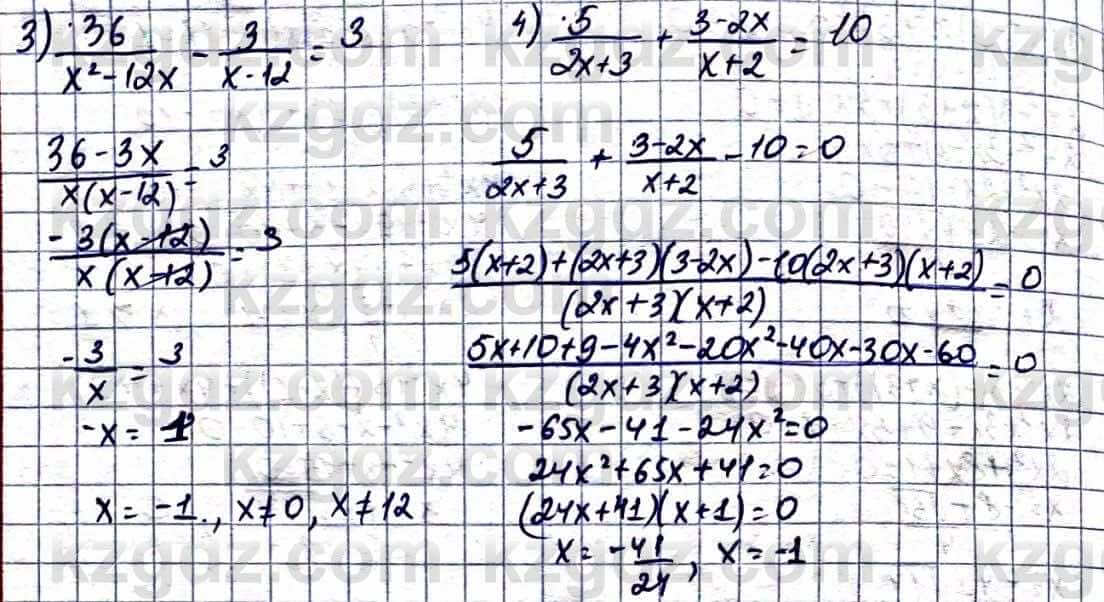 3) 36/(x²-12x) - 3/(x-12) = 3
(36-3x)/(x(x-12)) = 3
-3(x-12)/(x(x-12)) = 3
-3/x = 3
-x = 1
x = -1., x≠0, x≠12
4) 5/(2x+3) + (3-2x)/(x+2) = 10
5/(2x+3) + (3-2x)/(x+2) - 10 = 0
(5(x+2)+(2x+3)(3-2x)-10(2x+3)(x+2))/((2x+3)(x+2)) = 0
(5x+10+9-4x²-20x²-40x-30x-60)/((2x+3)(x+2)) = 0
-65x-41-24x²=0
24x²+65x+41=0
(24x+41)(x+1)=0
x = -41/24, x = -1
kzgdz.com